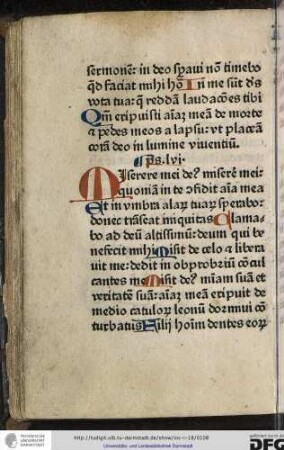 sermonē: in deo sꝑaui nō timebo
qd faciat mihi hō In me sūt dꝰs
vota tua: q̄ reddā laudacōes tibi
Qm̄ eripuisti aīaꝫ meā de morte
a pedes meos a lapsu: vt placeā
corā deo in lumine viuentiū.
Ps. lvj.
Miserere mei deꝰ miserē mei:
quoniā in te ɔfidit aīa mea
Et in vmbra alaꝝ tuaꝝ sperabo:
donec trāseat iniquitas Clama-
bo ad deū altissimū: deum qui be
nefecit mihi Misit de celo ⁊ libera
uit me: dedit in obprobriū cōcul
cantes me Misit deꝰ mīam suā et
veritatē suā: aīaꝫ meā eripuit de
medio catuloꝝ leonū dormiui cō
turbatus Filij hoīm dentes eoꝝ
http://tudigit.ulb.tu-darmstadt.de/show/inc-ii-19/0108
Universitäts- und Landesbibliothek Darmstadt
TECHNISCHE
UNIVERSITÄT
DARMSTADT
DFG